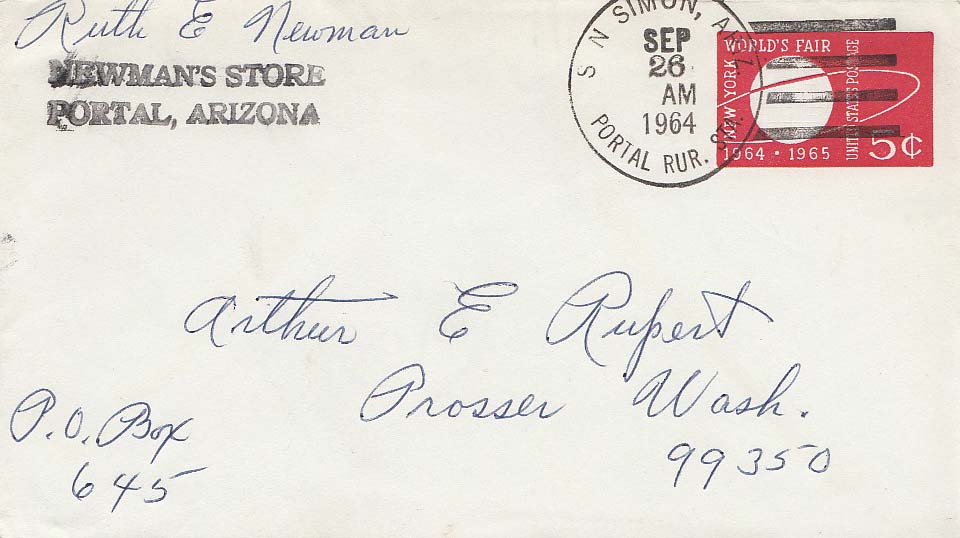 Ruth E Newman
NEWMAN'S STORE
PORTAL, ARIZONA
S N SIMON, ARIZ
SEP
26
AM
1964
PORTAL RUR. STA.
NEW YORK
WORLD'S FAIR
UNITED STATES POSTAGE
1964 · 1965
5¢
Arthur E Rupert
Prosser Wash.
99350
P.O. Box
645